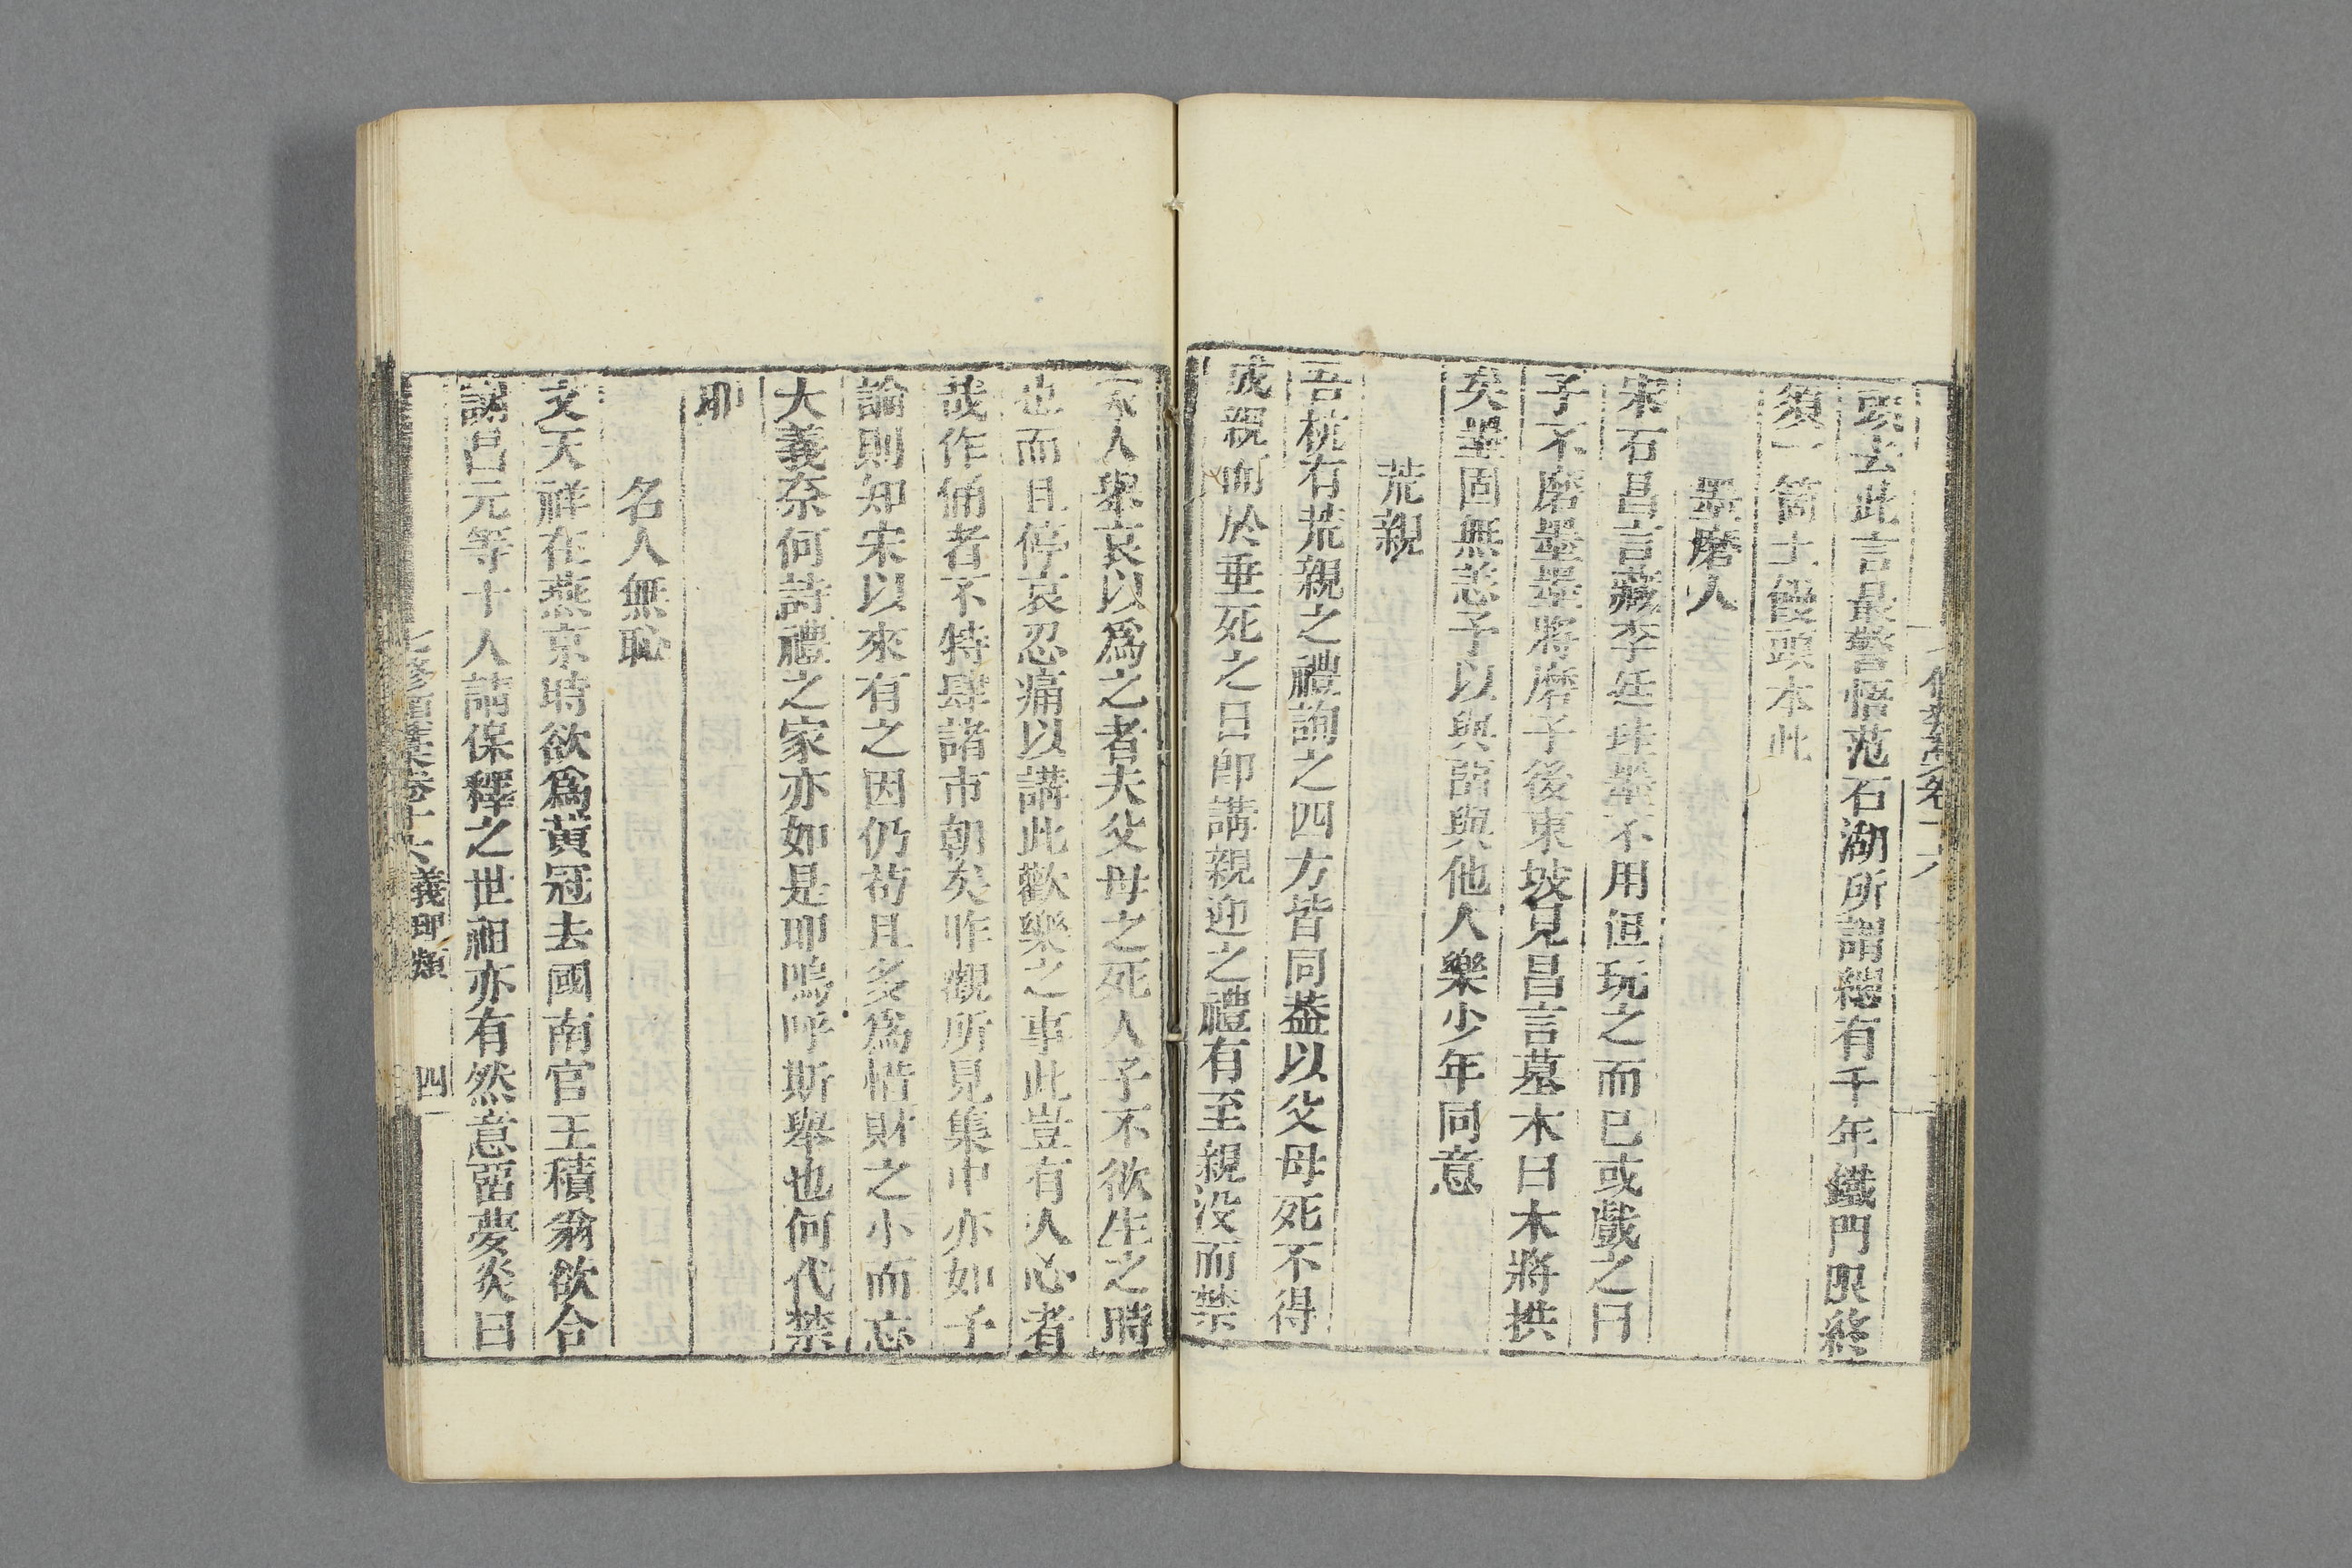 頭去此言最警悟范石湖所謂縱有千年鐵門限終
須一箇土饅頭本此
墨磨人
宋石昌言藏李廷珪墨不用但玩之而已或戲之曰
子不磨墨墨將磨子後東坡見昌言墓木曰木將拱
矣墨固無恙予以與留與他人樂少年同意
荒親
吾杭有荒親之禮詢之四方皆同葢以父母死不得
成親而於垂死之日即講親迎之禮有至親没而禁
家人舉哀以爲之者夫父母之死人子不欲生之時
也而且停哀忍痛以講此歡樂之事此豈有人心者
哉作俑者不特肆諸市朝矣昨觀所見集中亦如予
論則知宋以來有之因仍苟且多爲惜財之小而忘
大義奈何詩禮之家亦如是耶嗚呼斯舉也何代禁
耶
名人無恥
文天祥在燕京時欲爲黃冠去國南官王積翁欲合
謝昌元等十人請保釋之世祖亦有然意畱夢炎曰
七修類稾卷十六 義理類 四